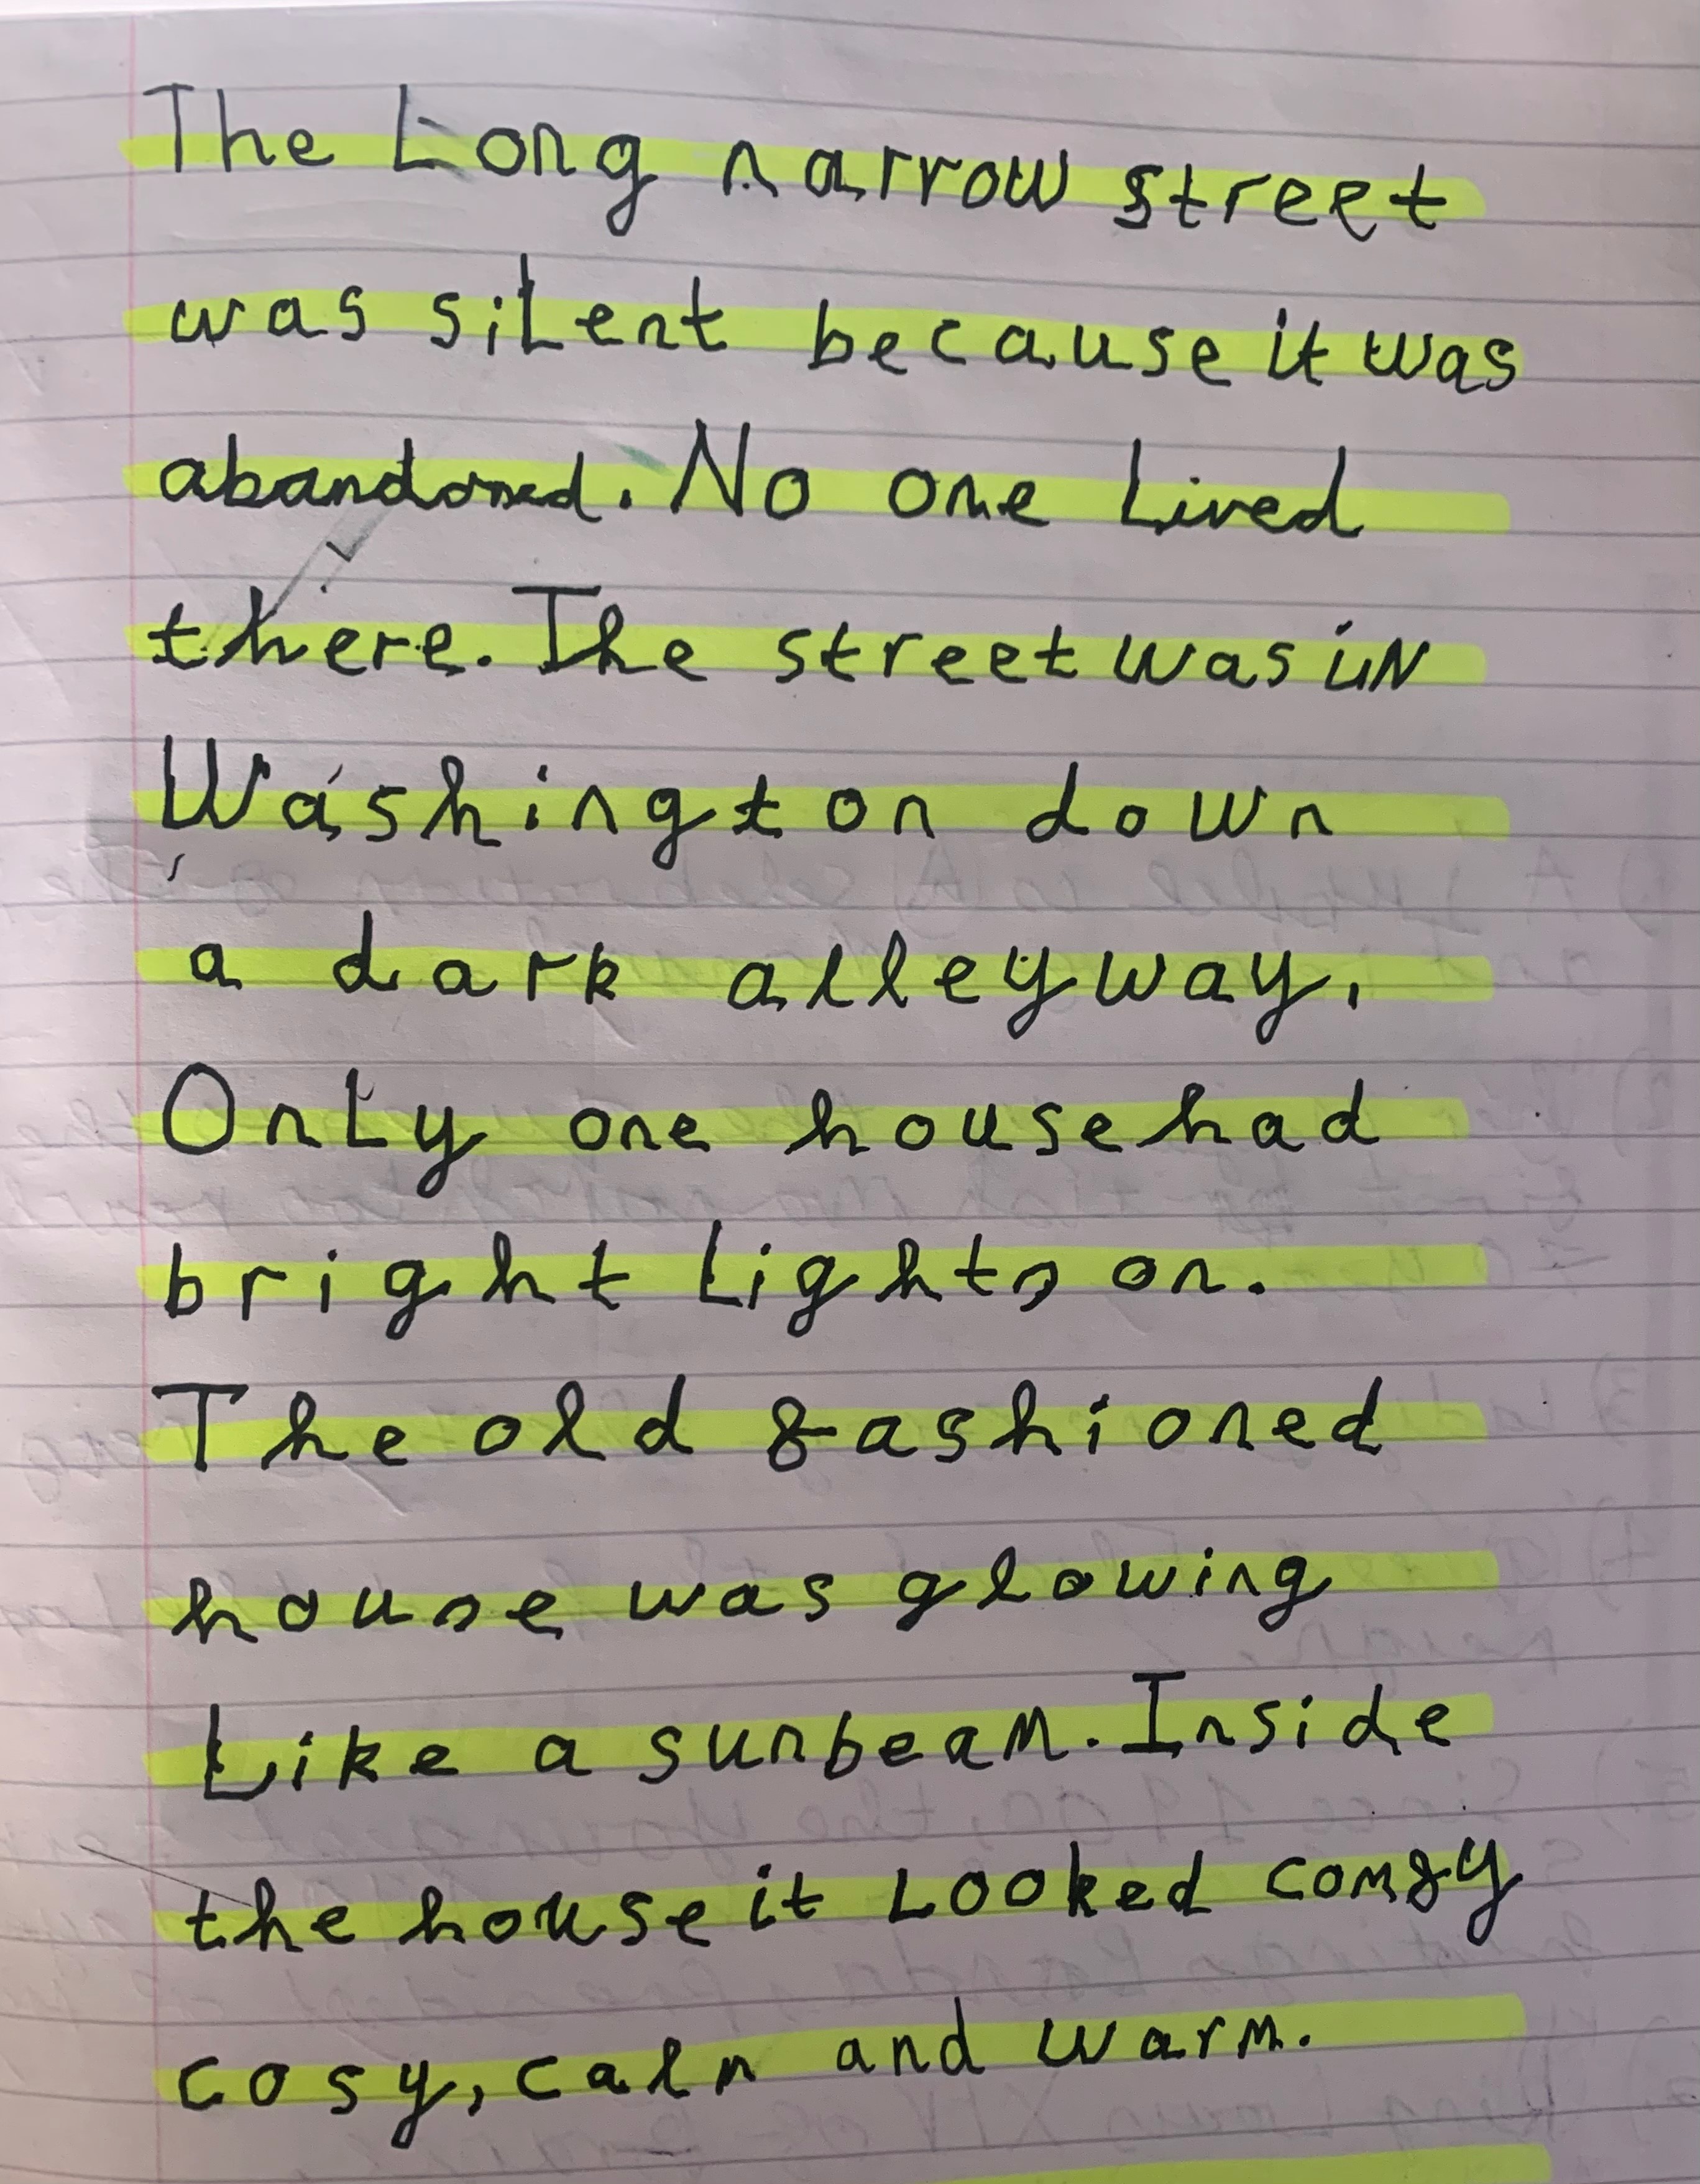 The Long narrow street
was silent because it was
abandoned. No one lived
there. The street was in
Washington down
a dark alleyway.
Only one house had
bright lights on.
The old fashioned
house was glowing
like a sunbeam. Inside
the house it looked comfy
cosy, caln and warm.